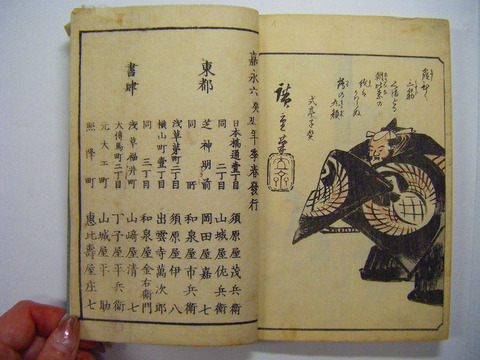 廣重筆
嘉永六癸丑年季春發行
東都
日本橋通壹丁目 須原屋茂兵衛
同 二丁目 山城屋佐兵衛
芝神明前 岡田屋嘉七
同所 和泉屋市兵衛
浅草茅町二丁目 須原屋伊八
横山町壹丁目 出雲寺萬次郎
同 三丁目 和泉屋金右衛門
書肆
浅草福井町 山﨑屋清七
大傳馬町二丁目 丁子屋平兵衛
元大工町 山城屋平助
照降町 恵比壽屋庄七